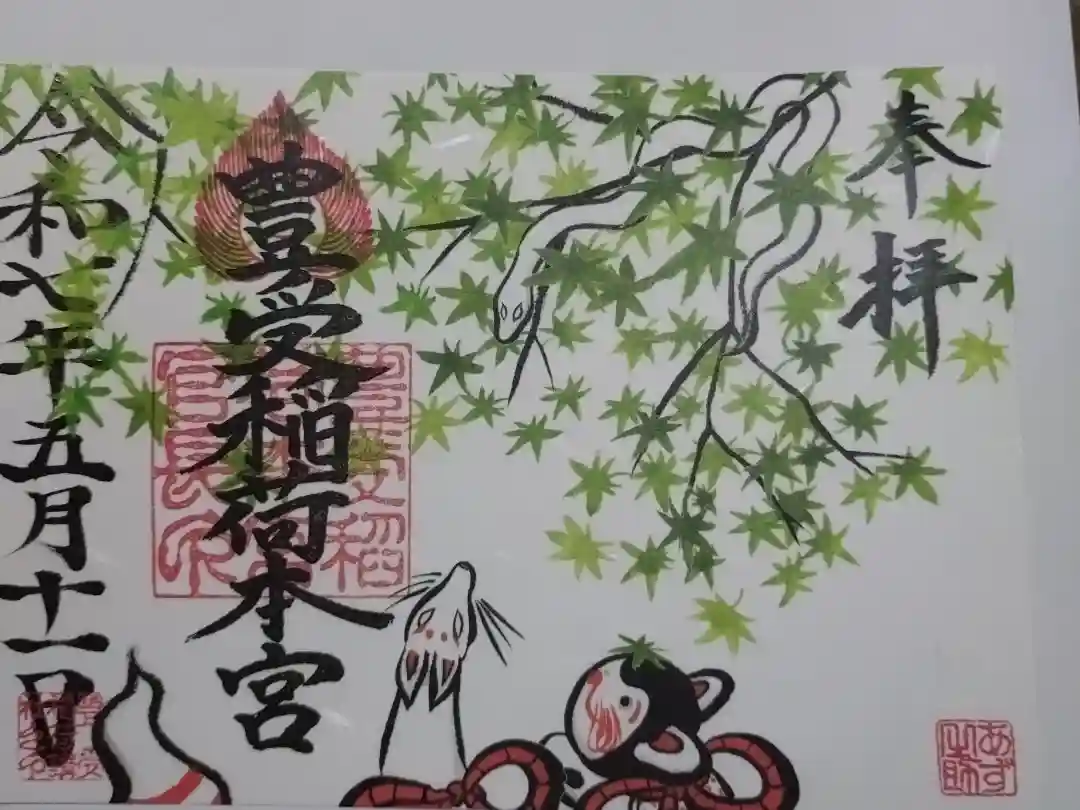 奉拝
豊受稲荷本宮
令和七年五月十一日